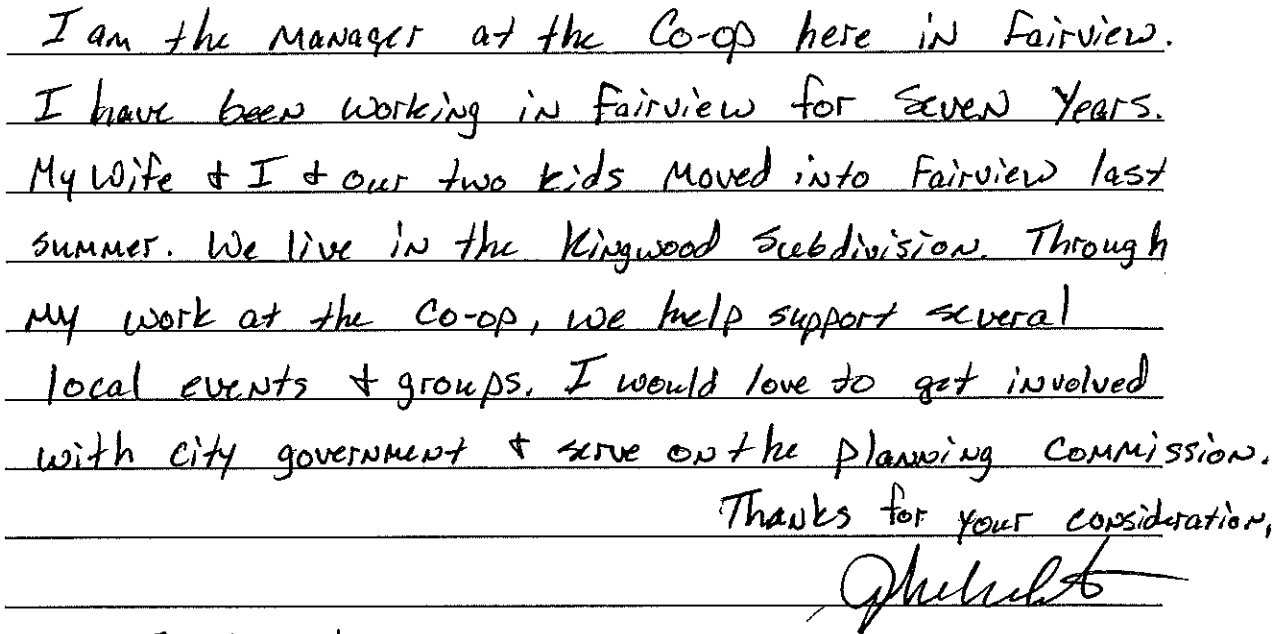 I am the Manager at the Co-op here in Fairview.
I have been working in Fairview for Seven Years.
My Wife & I & our two kids Moved into Fairview last
summer. We live in the Kingwood Subdivision. Through
My work at the Co-op, we help support several
local events & groups. I would love to get involved
with city government & serve on the planning Commission.
Thanks for your consideration,